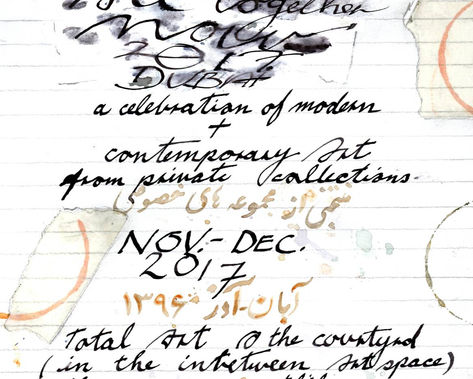 together
Now
2017
DUBAI
a celebration of modern
+
contemporary Art
from private collections.
منتخبی از مجموعه های خصوصی
NOV.- DEC.
2017
آبان-آذر ۱۳۹۶
Total Art @ the courtyard
(in the inbetween Art space)